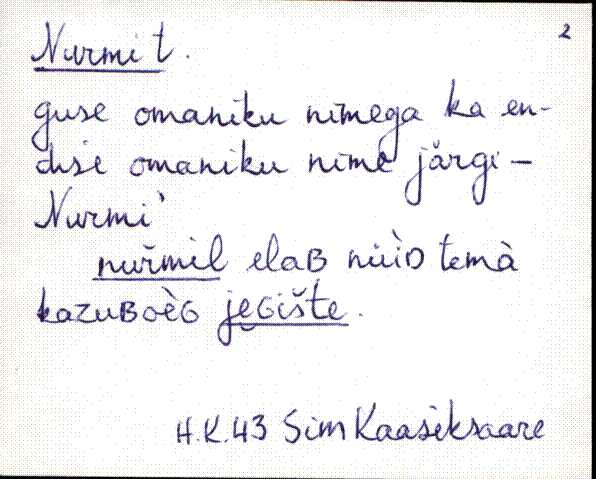 2
Nurmi t.
guse omaniku nimega ka en-
dise omaniku nime järgi –
Nurmi'
nuřmil elaʙ nüìᴅ temà
kazuʙoèɢ jẹɢište.
H.K. 43 Sim Kaasiksaare